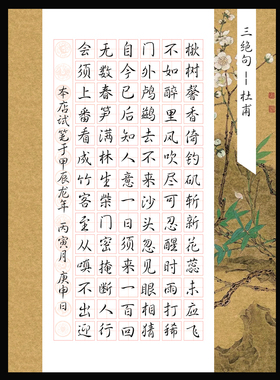 三绝句——杜甫
楸树馨香倚钓矶斩新花蕊未应飞
不如醉里风吹尽可忍醒时雨打稀
门外鸬鹚去不来沙头忽见眼相猜
自今已后知人意一日须来一百回
无数春笋满林生柴门密掩断人行
会须上番看成竹客至从嗔不出迎
本店试笔于甲辰龙年 丙寅月 庚申日